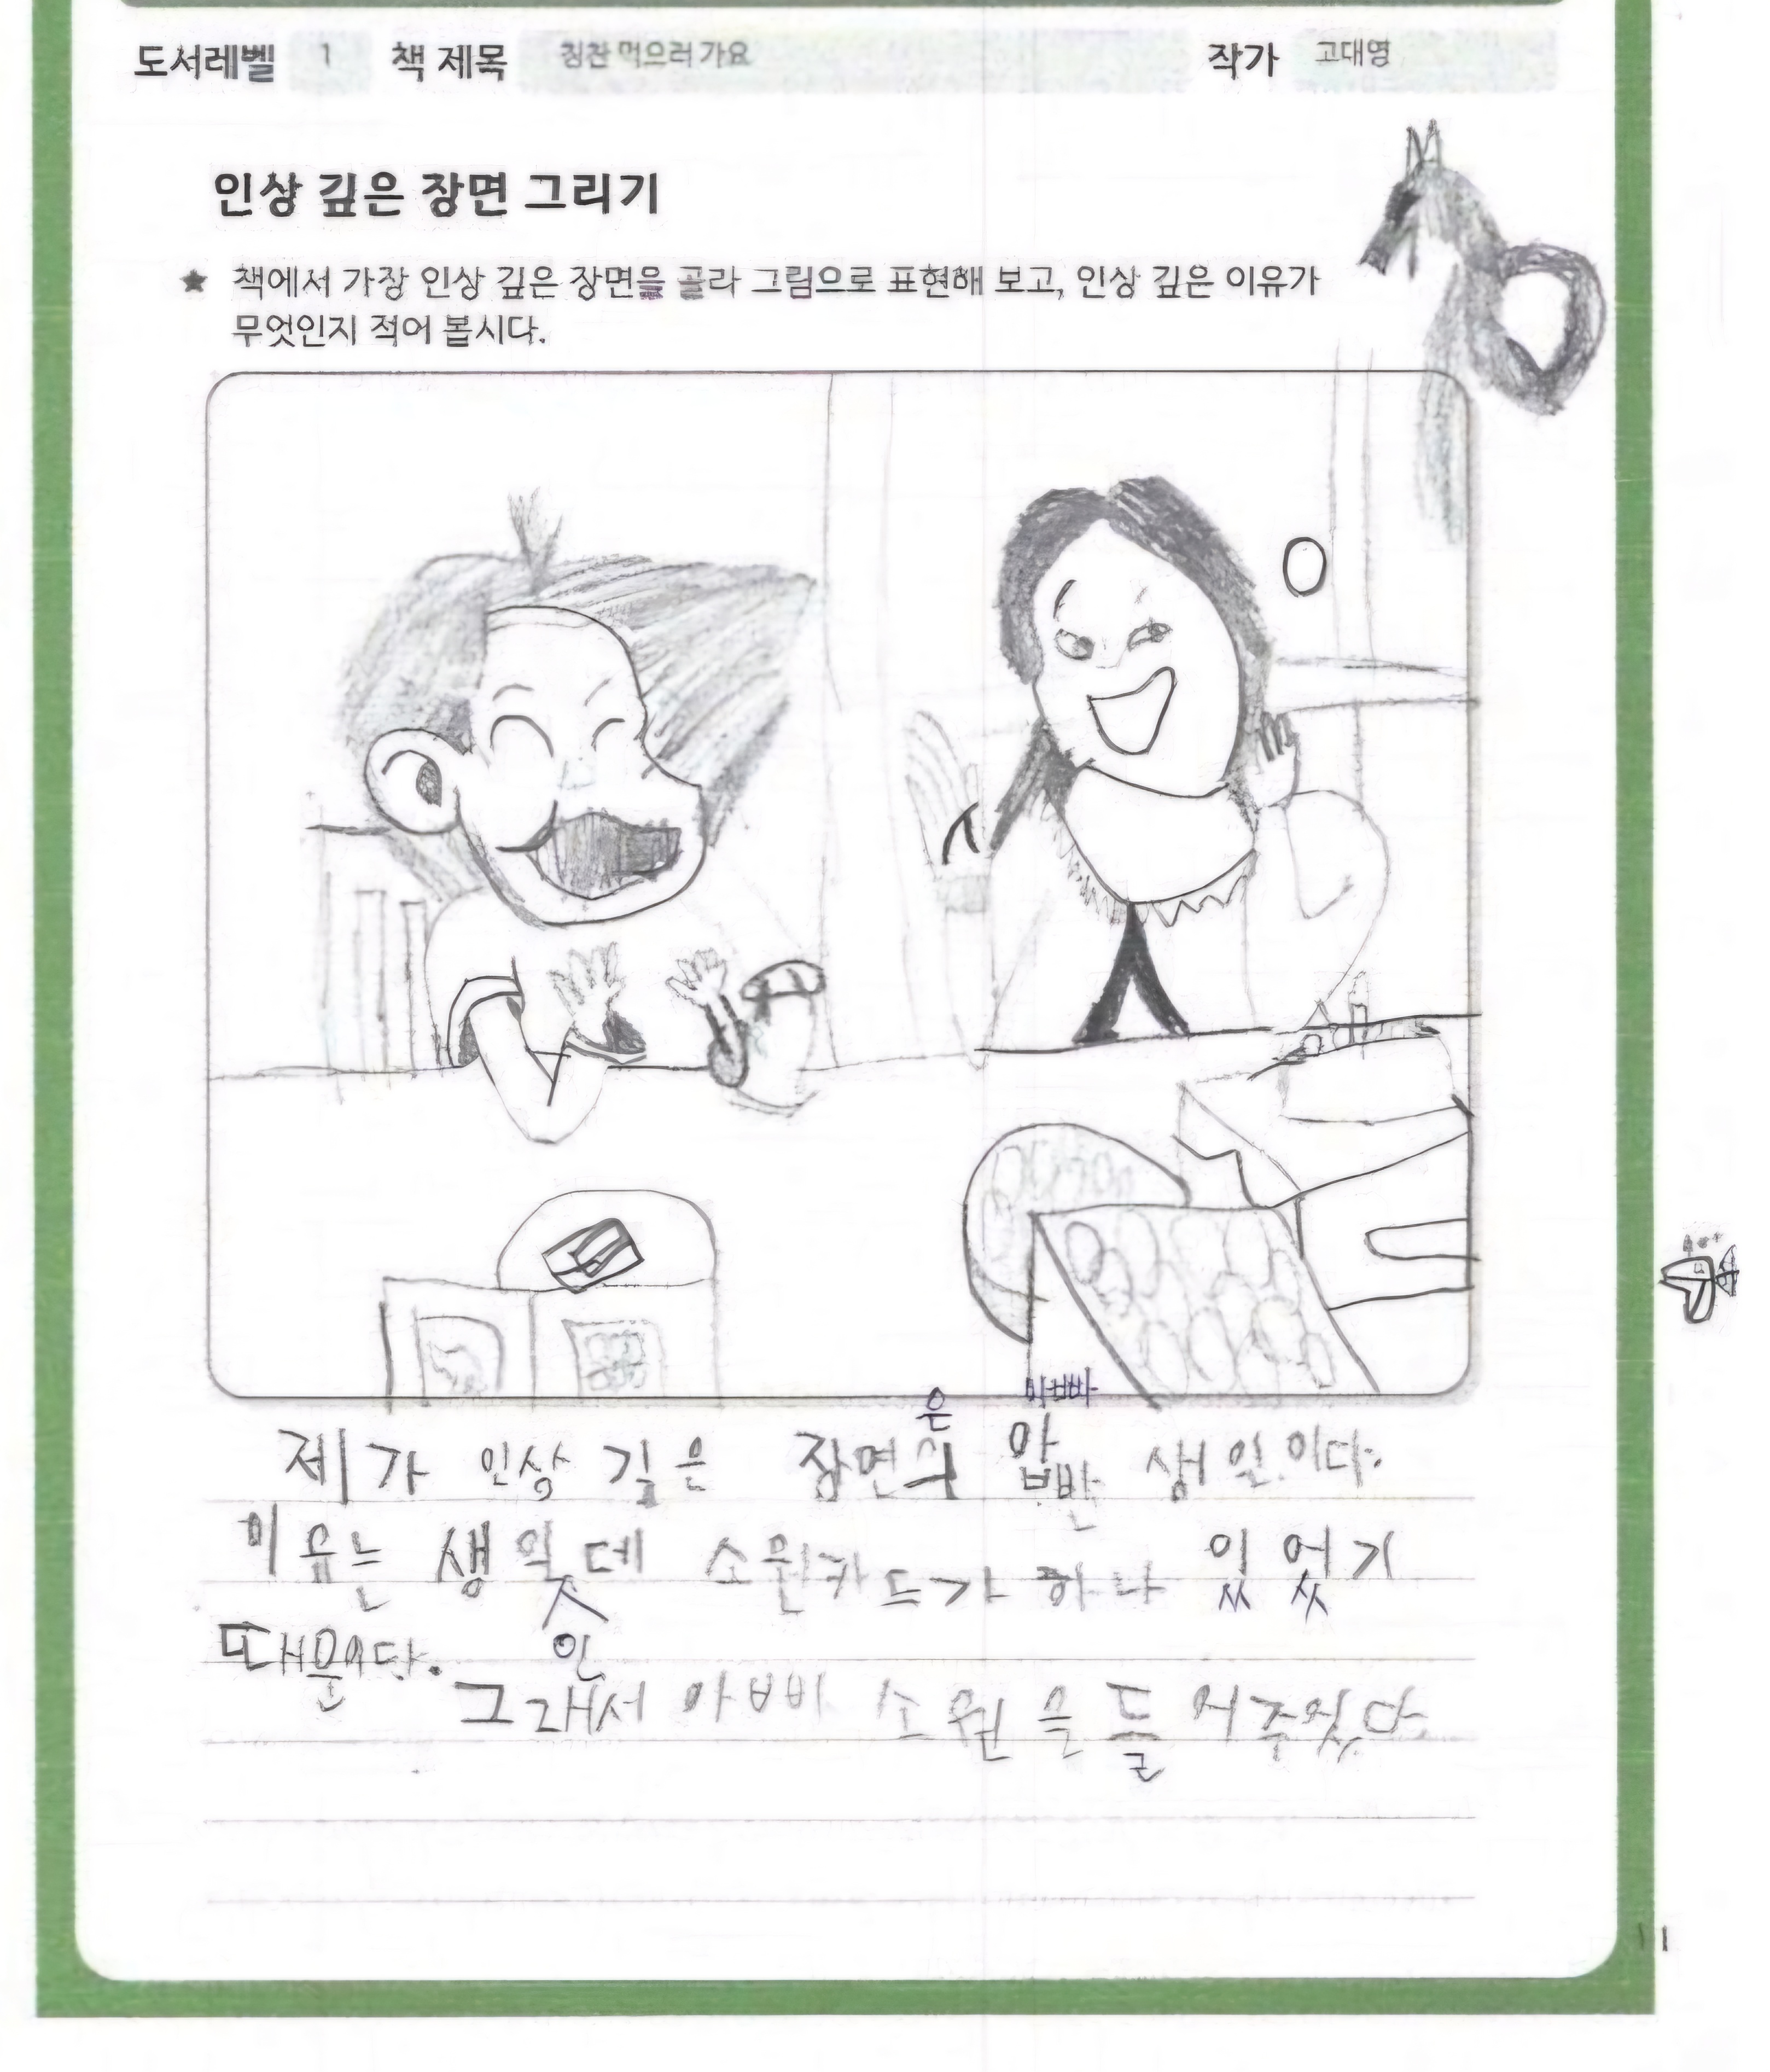 도서레벨 1 책 제목 칭찬 먹으러 가요 작가 고대영
인상 깊은 장면 그리기
★ 책에서 가장 인상 깊은 장면을 골라 그림으로 표현해 보고, 인상 깊은 이유가
무엇인지 적어 봅시다.
은 아빠
제가 인상 깊은 장면 압빠 생일이다.
이유는 생일 데 소원카드가 하나 있었기
때문이다. 인
그래서 아빠 소원을 들어주었다